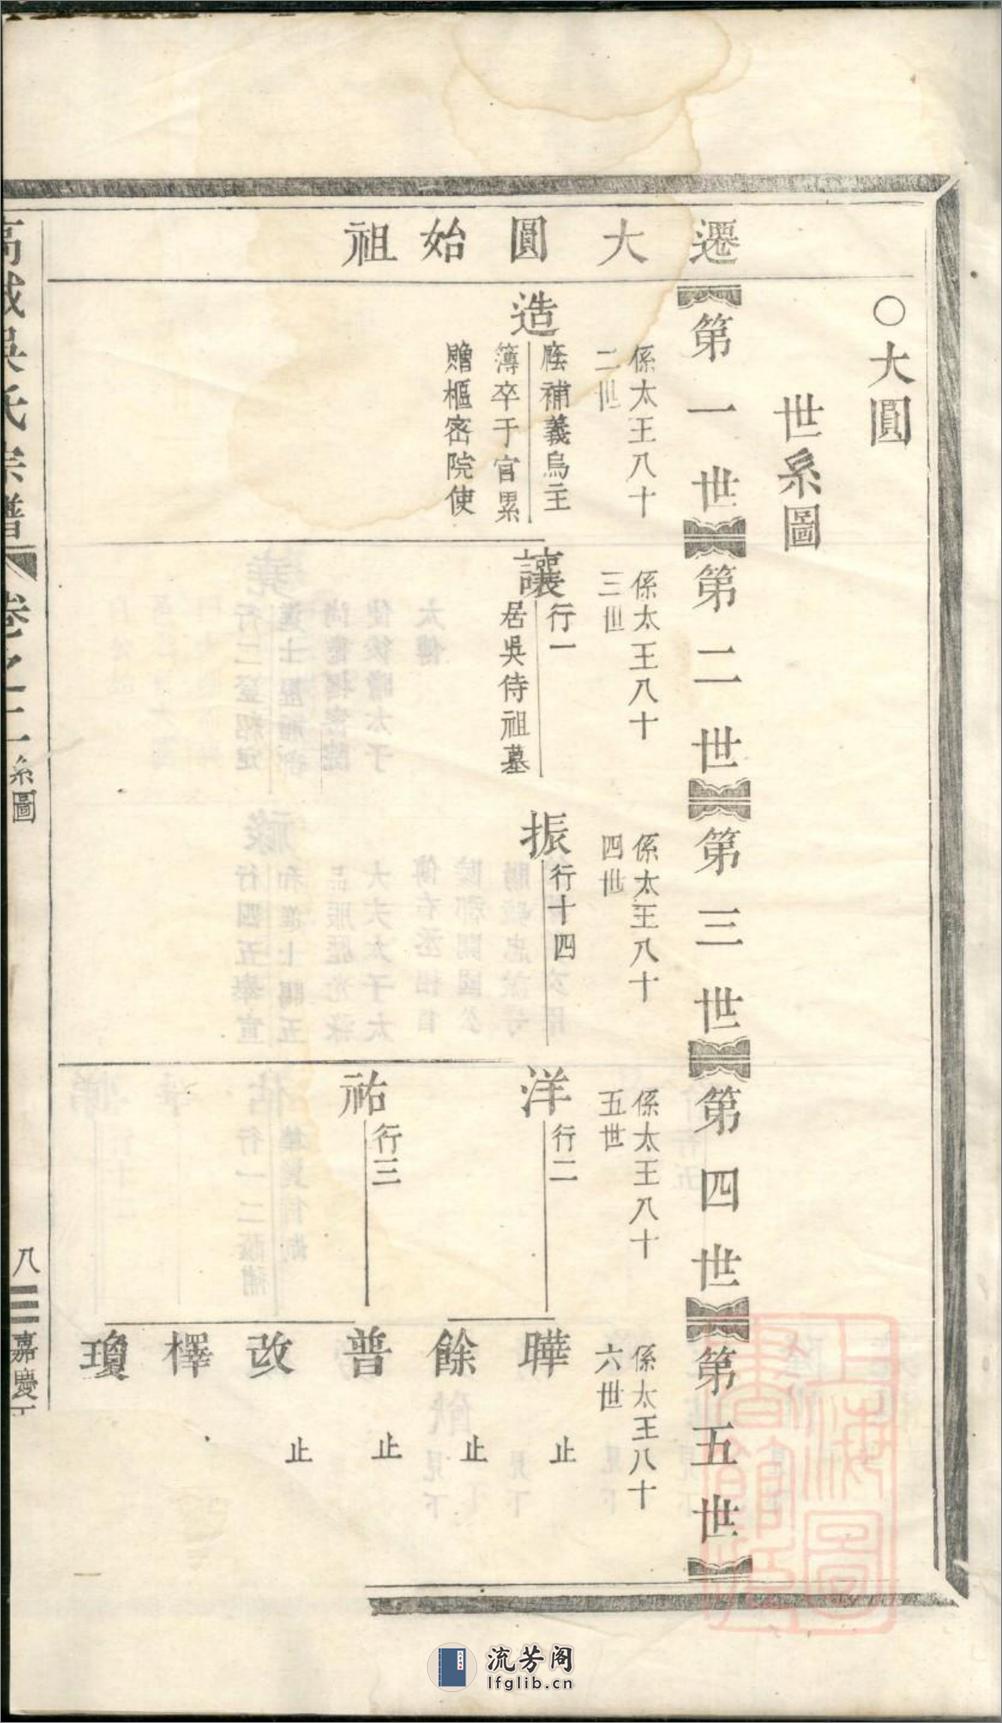 ○大圓
世系圖
遷大圓始祖
第一世
第二世
第三世
第四世
第五世
係太王八十
二世
係太王八十
三世
係太王八十
四世
係太王八十
五世
係太王八十
六世
造
廕補義烏主
簿卒于官累
贈樞密院使
讓
行一
居吳侍祖墓
振
行十四
洋
行二
祐
行三
曄
止
餘
止
普
止
改
止
檡
瓊
吳氏宗譜
卷之
系圖
八
嘉慶
上海圖
書館藏
流芳阁
lfglib.cn